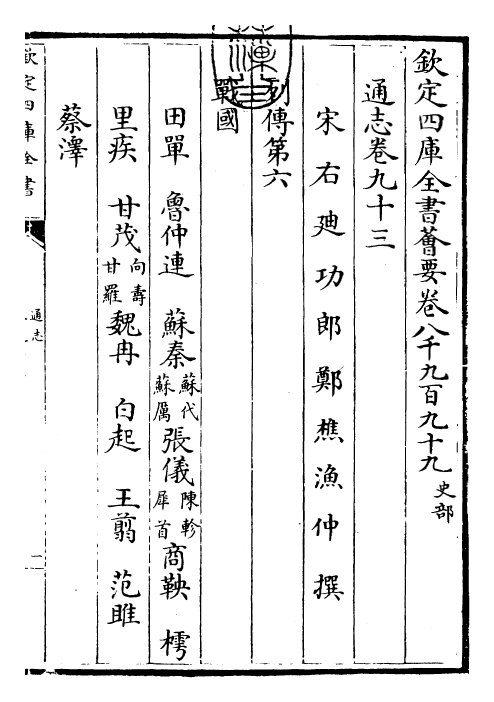 欽定四庫全書薈要卷八千九百九十九 史部
通志卷九十三
宋右廸功郎鄭樵漁仲撰
列傳第六
戰國
田單 魯仲連 蘇秦 蘇代 蘇厲 張儀 陳軫 犀首 商鞅 樗
里疾 甘茂 向壽 甘羅 魏冉 白起 王翦 范雎
蔡澤
欽定四庫全書
通志